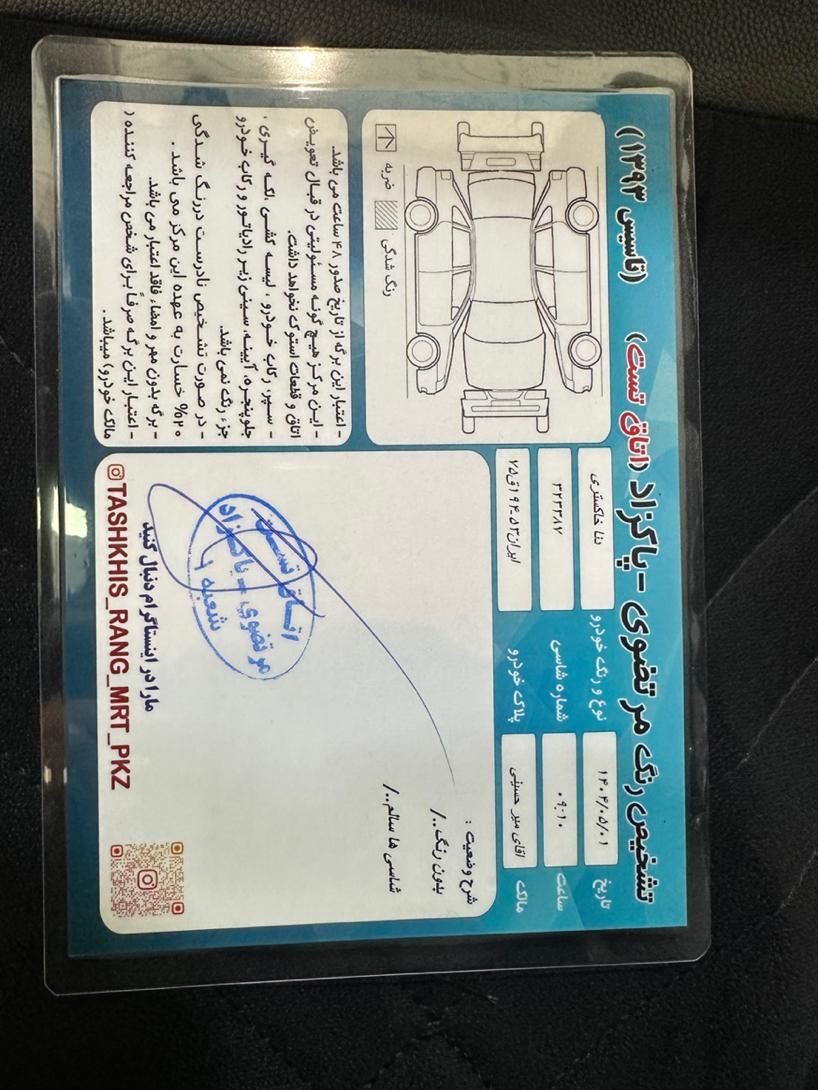 تشخیص رنگ مرتضوی - پاکزاد (اتاق تست) (تاسیس ۱۳۹۳)
تاریخ
۱۴۰۴/۰۵/۰۱
نوع و رنگ خودرو
دنا خاکستری
ساعت
۰۹:۱۰
شماره شاسی
۳۲۳۳۸۷
مالک
اقای میر حسینی
پلاک خودرو
ایران۵۳-۱۹۴ق۷۵
شرح وضعیت :
بدون رنگ../
شاسی ها سالم../
ضربه
رنگ شدگی
- اعتبار این برگه از تاریخ صدور ۴۸ ساعت می باشد.
- این مرکز هیچ گونه مسئولیتی در قبال تعویض
اتاق و قطعات استوک نخواهد داشت.
- سپر، رکاب خودرو ، لیسه کشی ،لکه گیری ،
جلوپنجره، آیینه، سینی زیر رادیاتور و رکاب خودرو
جزء رنگ نمی باشد.
- در صورت تشخیص نادرست دررنگ شدگی
۲۰% خسارت به عهده این مرکز می باشد .
- برگه بدون مهر و امضاء فاقد اعتبار می باشد.
- اعتبار این برگه صرفاً برای شخص مراجعه کننده (
مالک خودرو) میباشد .
اتاق تست
مرتضوی - پاکزاد
شعبه ۱
مارا در اینستاگرام دنبال کنید
TASHKHIS_RANG_MRT_PKZ